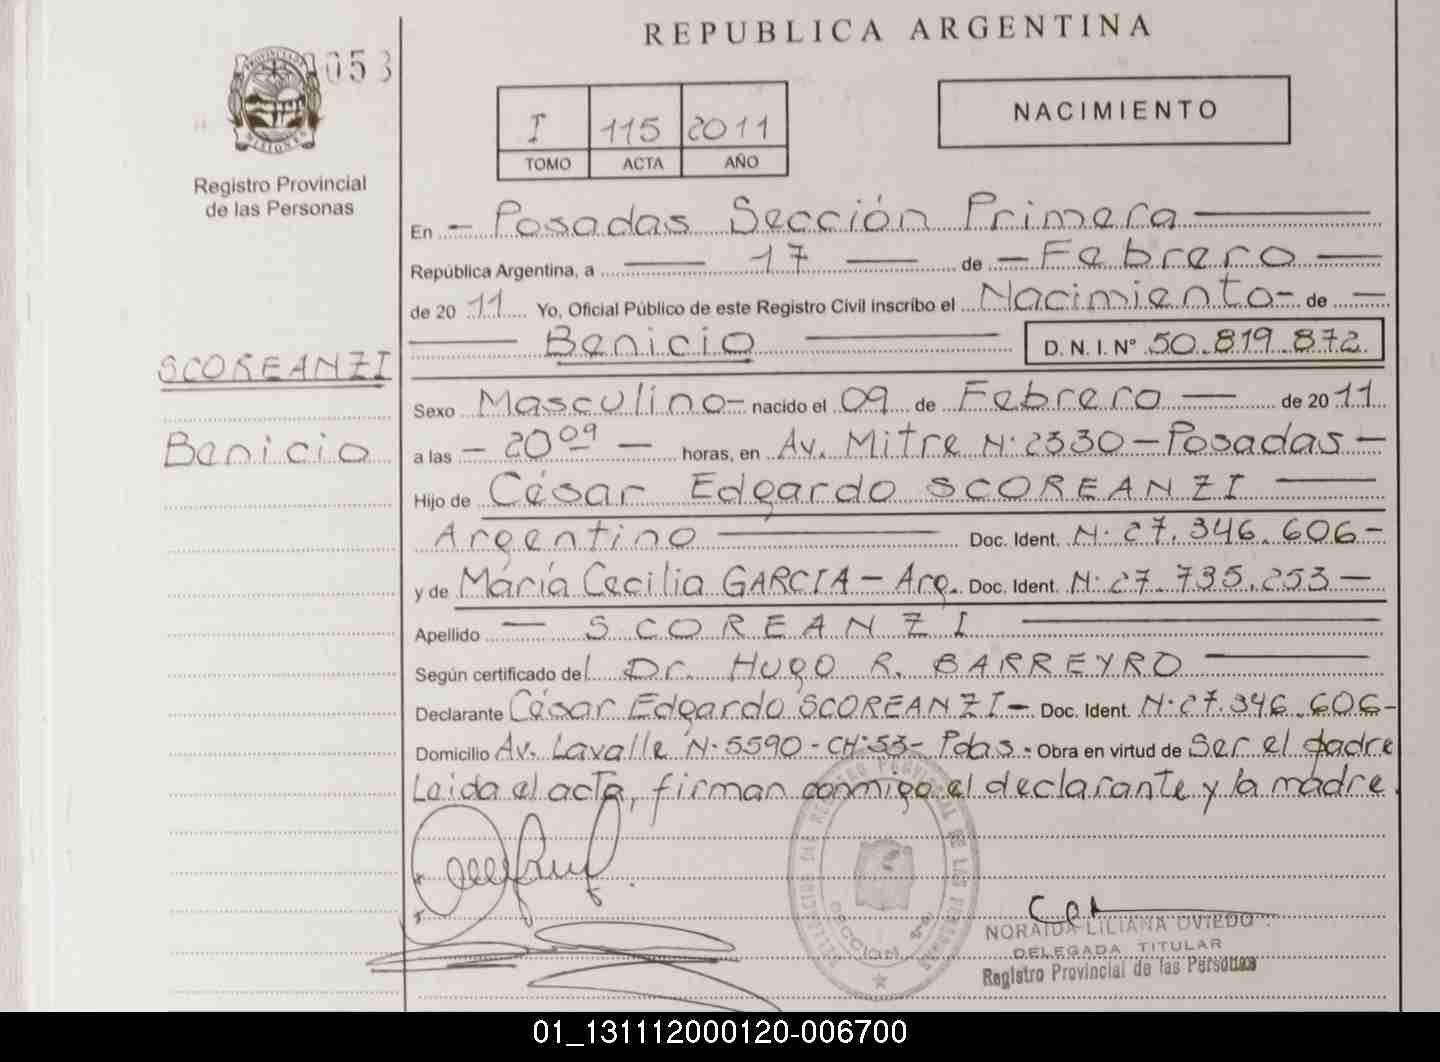 REPUBLICA ARGENTINA
053
PROVINCIA DE MISIONES
Registro Provincial
de las Personas
I 115 2011
TOMO ACTA AÑO
NACIMIENTO
En - Posadas Sección Primera
República Argentina, a 17 de - Febrero -
de 2011 Yo, Oficial Público de este Registro Civil inscribo el Nacimiento - de -
Benicio D. N. I. N° 50.819.872
SCOREANZI
Sexo Masculino - nacido el 09 de Febrero - de 2011
Benicio
a las - 20 09 - horas, en Av. Mitre N: 2330 - Posadas -
Hijo de César Edgardo SCOREANZI
Argentino Doc. Ident. N: 27.346.606 -
y de María Cecilia GARCIA - Arg. Doc. Ident. N: 27.735.253 -
Apellido - SCOREANZI
Según certificado del Dr. HUGO R. BARREYRO
Declarante César Edgardo SCOREANZI - Doc. Ident. N: 27.346.606 -
Domicilio Av. Lavalle N: 5590 - CH: 53 - Pdas - Obra en virtud de Ser el padre
Leida el acta, firman conmigo el declarante y la madre.
REGISTRO PROVINCIAL DE LAS PERSONAS
SECCION 1ra
NORAIDA LILIANA OVIEDO
DELEGADA TITULAR
Registro Provincial de las Personas
01_131112000120-006700